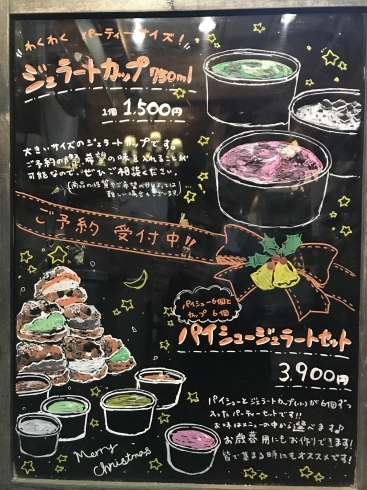 わくわく パーティーサイズ!
ジェラートカップ 750ml
1個 1,500円
大きいサイズのジェラートカップです。
ご予約の際、希望の味を入れることが
可能なので、ぜひご相談ください。
難しい場合もございます
ご予約 受付中!!
パイシュー6個と
カップ 6個
パイシュージェラートセット
3,900円
パイシューとジェラートカップ(小)が6個ずつ
入ったパーティーセットです!!
お味はメニューの中から選べます♪
お歳暮用にもお作りできます!
皆で集まる時にもオススメです!
Merry
Christmas